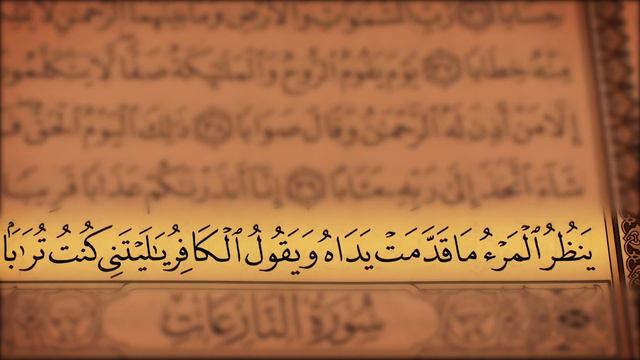 حِسَابًا رَّبِّ السَّمَاوَاتِ وَالْأَرْضِ وَمَا بَيْنَهُمَا الرَّحْمَٰنِ لَا
مِنْهُ خِطَابًا ٣٧ يَوْمَ يَقُومُ الرُّوحُ وَالْمَلَائِكَةُ صَفًّا لَّا يَتَكَلَّمُونَ
إِلَّا مَنْ أَذِنَ لَهُ الرَّحْمَٰنُ وَقَالَ صَوَابًا ٣٨ ذَٰلِكَ الْيَوْمُ الْحَقُّ
شَاءَ اتَّخَذَ إِلَىٰ رَبِّهِ مَآبًا ٣٩ إِنَّا أَنذَرْنَاكُمْ عَذَابًا قَرِيبًا
يَنظُرُ الْمَرْءُ مَا قَدَّمَتْ يَدَاهُ وَيَقُولُ الْكَافِرُ يَٰلَيْتَنِي كُنتُ تُرَٰبًا
سُورَةُ النَّازِعَاتِ